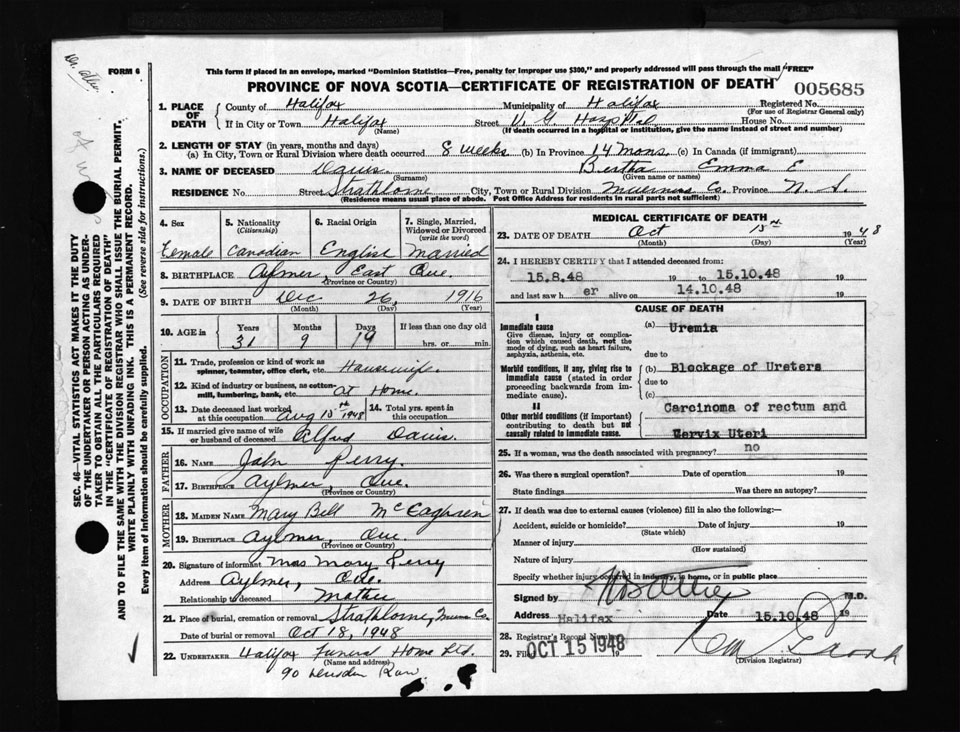 Dr. Allen
FORM 6
This form if placed in an envelope, marked "Dominion Statistics—Free, penalty for improper use $300," and properly addressed will pass through the mail "FREE"
PROVINCE OF NOVA SCOTIA—CERTIFICATE OF REGISTRATION OF DEATH
005685
1. PLACE OF DEATH
County of Halifax Municipality of Halifax Registered No.
(For use of Registrar General only)
If in City or Town Halifax Street V. G. Hospital House No.
(Name) (If death occurred in a hospital or institution, give the name instead of street and number)
2. LENGTH OF STAY (in years, months and days)
(a) In City, Town or Rural Division where death occurred 8 weeks (b) In Province 14 mons. (c) In Canada (if immigrant)
3. NAME OF DECEASED Davis Bertha Emma E
(Surname) (Given name or names)
RESIDENCE No. Street Strathlorne City, Town or Rural Division Inverness Co. Province N. S.
(Residence means usual place of abode. Post Office Address for residents in rural parts not sufficient)
SEC. 46—VITAL STATISTICS ACT MAKES IT THE DUTY
OF THE UNDERTAKER OR PERSON ACTING AS UNDER-
TAKER TO OBTAIN ALL THE PARTICULARS REQUIRED
IN THE "CERTIFICATE OF REGISTRATION OF DEATH"
AND TO FILE THE SAME WITH THE DIVISION REGISTRAR WHO SHALL ISSUE THE BURIAL PERMIT.
WRITE PLAINLY WITH UNFADING INK. THIS IS A PERMANENT RECORD.
Every item of information should be carefully supplied. (See reverse side for instructions.)
4. Sex
Female
5. Nationality
(Citizenship)
Canadian
6. Racial Origin
English
7. Single, Married,
Widowed or Divorced
(write the word)
Married
8. BIRTHPLACE Aylmer, East Que.
(Province or Country)
9. DATE OF BIRTH Dec 26, 1916
(Month) (Day) (Year)
10. AGE in Years Months Days If less than one day old
31 9 19 hrs. or min.
OCCUPATION
11. Trade, profession or kind of work as
spinner, teamster, office clerk, etc. Housewife.
12. Kind of industry or business, as cotton-
mill, lumbering, bank, etc. at Home.
13. Date deceased last worked
at this occupation Aug 15th 1948
14. Total yrs. spent in
this occupation
15. If married give name of wife
or husband of deceased Alfred Davis.
FATHER
16. NAME John Perry.
17. BIRTHPLACE Aylmer, Que.
(Province or Country)
MOTHER
18. MAIDEN NAME Mary Bell McEaghren
19. BIRTHPLACE Aylmer, Que.
(Province or Country)
20. Signature of informant Mrs Mary Perry
Address Aylmer, Que.
Relationship to deceased Mother
21. Place of burial, cremation or removal Strathlorne, Inver. Co.
Date of burial or removal Oct 18, 1948
22. UNDERTAKER Halifax Funeral Home Ltd.
(Name and address)
90 Row.
MEDICAL CERTIFICATE OF DEATH
23. DATE OF DEATH Oct 15th 1948
(Month) (Day) (Year)
24. I HEREBY CERTIFY that I attended deceased from:
15.8.48 19 to 15.10.48 19
and last saw h er alive on 14.10.48 19
CAUSE OF DEATH
I
Immediate cause
Give disease, injury or complica-
tion which caused death, not the
mode of dying, such as heart failure,
asphyxia, asthenia, etc.
(a) Uremia
due to
Morbid conditions, if any, giving rise to
immediate cause (stated in order
proceeding backwards from im-
mediate cause).
(b) Blockage of Ureters
due to
(c)
II
Other morbid conditions (if important)
contributing to death but not
causally related to immediate cause.
Carcinoma of rectum and
Cervix Uteri
25. If a woman, was the death associated with pregnancy? no
26. Was there a surgical operation? Date of operation 19
State findings Was there an autopsy?
27. If death was due to external causes (violence) fill in also the following:—
Accident, suicide or homicide? Date of injury 19
(State which)
Manner of injury
(How sustained)
Nature of injury
Specify whether injury occurred in industry, in home, or in public place
Signed by M.D.
Address Halifax Date 15.10.48 19
28. Registrar's Record Number
29. Filed OCT 15 1948
(Division Registrar)